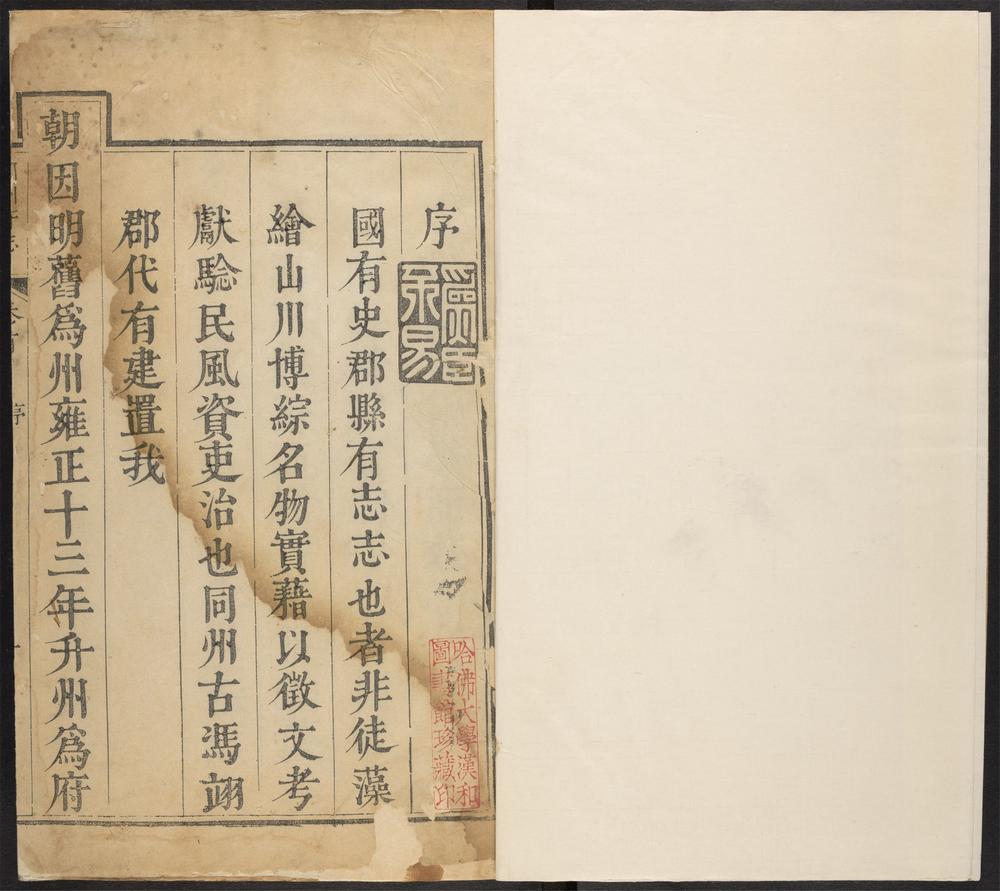 序
國有史郡縣有志志也者非徒藻
繪山川博綜名物實藉以徵文考
獻騐民風資吏治也同州古馮翊
郡代有建置我
朝因明舊為州雍正十三年升州為府
序
哈佛大學漢和
圖書館珍藏印